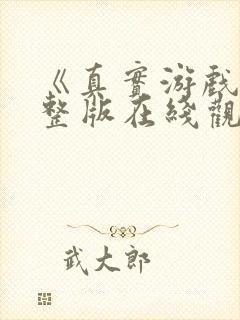 《真實游戲
整版在綫觀
武大郎